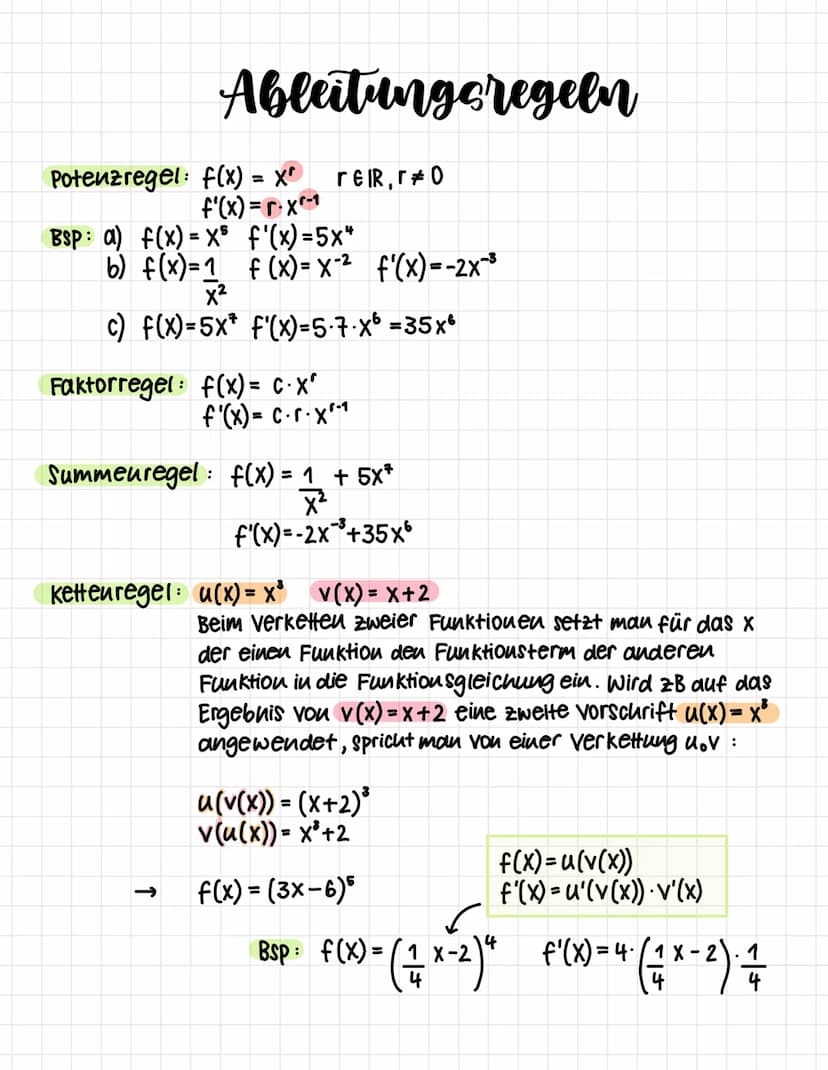 Ableitungsregeln
Potenzregel: f(x) = xʳ r∈ℝ, r≠0
f'(x) = r·xʳ⁻¹
Bsp: a) f(x) = x⁵ f'(x) = 5x⁴
b) f(x) = 1/x² f(x) = x⁻² f'(x) = -2x⁻³
c) f(x) = 5x⁷ f'(x) = 5·7·x⁶ = 35x⁶
Faktorregel: f(x) = c·xʳ
f'(x) = c·r·xʳ⁻¹
Summenregel: f(x) = 1/x² + 5x⁷
f'(x) = -2x⁻³+35x⁶
Kettenregel: u(x) = x³ v(x) = x+2
Beim Verketten zweier Funktionen setzt man für das x
der einen Funktion den Funktionsterm der anderen
Funktion in die Funktionsgleichung ein. Wird zB auf das
Ergebnis von v(x) = x+2 eine zweite Vorschrift u(x) = x³
angewendet, spricht man von einer Verkettung u∘v :
u(v(x)) = (x+2)³
v(u(x)) = x³+2
f(x) = u(v(x))
f'(x) = u'(v(x))·v'(x)
→ f(x) = (3x-6)⁵
Bsp: f(x) = (1/4 x-2)⁴ f'(x) = 4·(1/4 x-2)·1/4